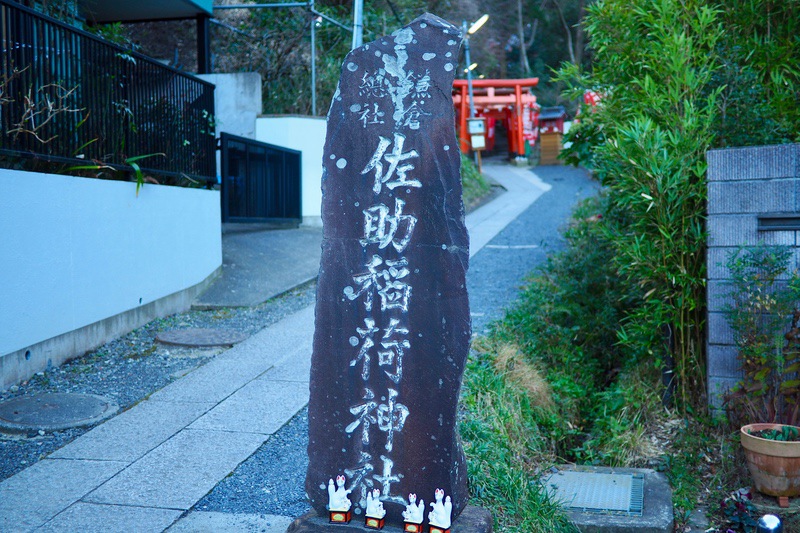 鎌倉
總社
佐助稲荷神社